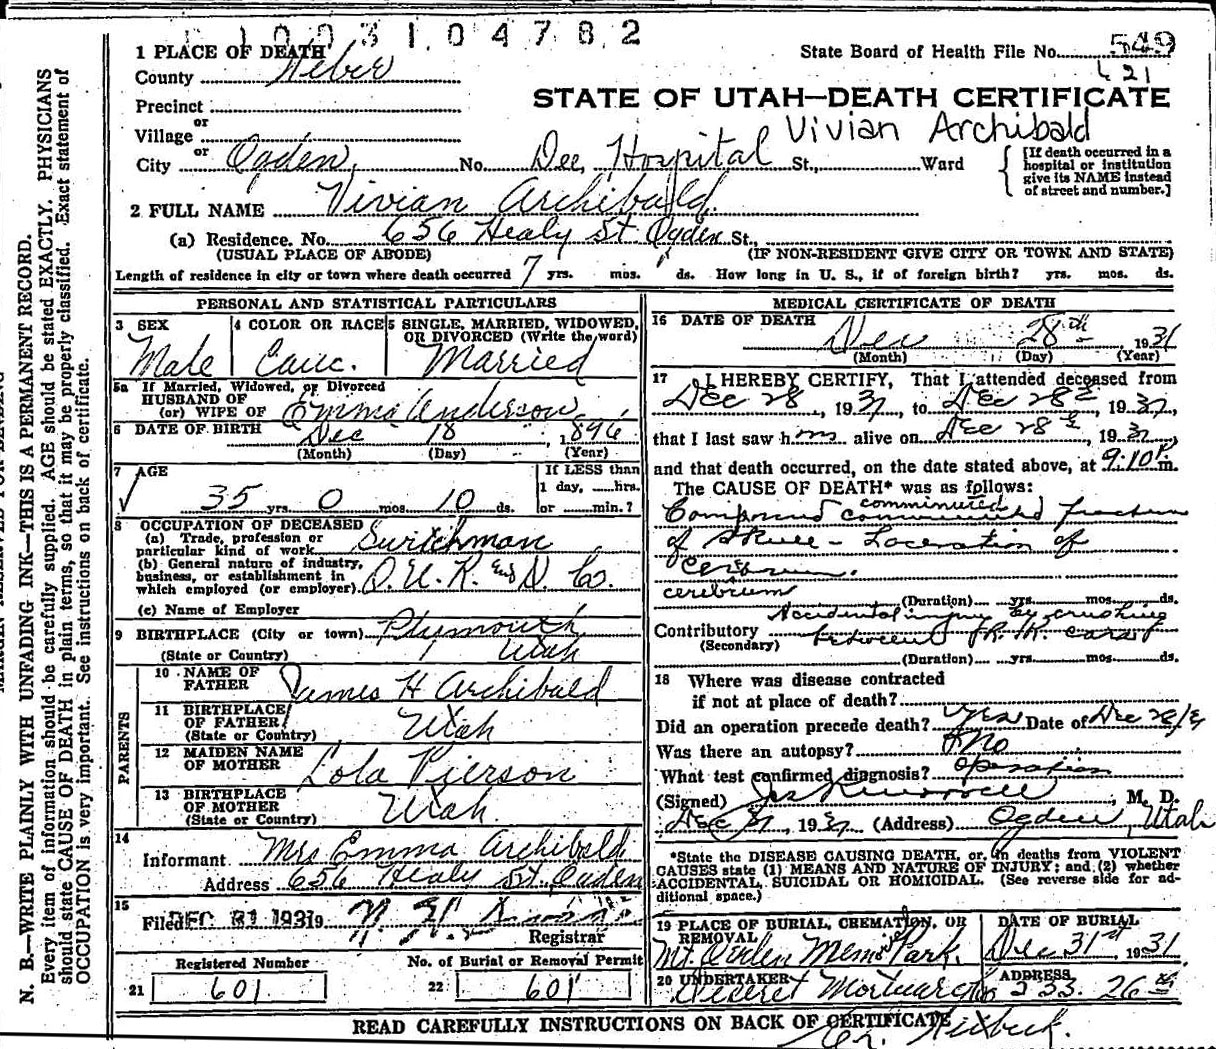 1003104782
1 PLACE OF DEATH
State Board of Health File No. 549
County Weber
621
Precinct
STATE OF UTAH—DEATH CERTIFICATE
or
Village
Vivian Archibald
or
City Ogden, No. Dee, Hospital St., Ward
[If death occurred in a hospital or institution give its NAME instead of street and number.]
2 FULL NAME Vivian Archibald.
(a) Residence. No. 656 Healy St. Ogden St.,
(USUAL PLACE OF ABODE) (IF NON-RESIDENT GIVE CITY OR TOWN AND STATE)
Length of residence in city or town where death occurred 7 yrs. mos. ds. How long in U. S., if of foreign birth? yrs. mos. ds.
PERSONAL AND STATISTICAL PARTICULARS
3 SEX 4 COLOR OR RACE 5 SINGLE, MARRIED, WIDOWED, OR DIVORCED (Write the word)
Male Cauc. Married
5a If Married, Widowed, or Divorced
HUSBAND OF
(or) WIFE OF Emma Anderson
6 DATE OF BIRTH Dec 18 1896
(Month) (Day) (Year)
7 AGE If LESS than
1 day, hrs.
35 yrs. 0 mos. 10 ds. or min.?
8 OCCUPATION OF DECEASED
(a) Trade, profession or
particular kind of work Switchman
(b) General nature of industry,
business, or establishment in
which employed (or employer) O. U. R. and D. Co.
(c) Name of Employer
9 BIRTHPLACE (City or town) Plymouth
(State or Country) Utah
PARENTS
10 NAME OF
FATHER James H Archibald
11 BIRTHPLACE
OF FATHER
(State or Country) Utah
12 MAIDEN NAME
OF MOTHER Lola Pierson
13 BIRTHPLACE
OF MOTHER
(State or Country) Utah.
14
Informant Mrs Emma Archibald
Address 656 Healy St. Ogden
15
Filed DEC 31 1931 19
Registrar
Registered Number No. of Burial or Removal Permit
21 601 22 601
MEDICAL CERTIFICATE OF DEATH
16 DATE OF DEATH
Dec 28th, 1931
(Month) (Day) (Year)
17 I HEREBY CERTIFY, That I attended deceased from
Dec 28, 1931, to Dec 28, 1931,
that I last saw him alive on Dec 28, 1931,
and that death occurred, on the date stated above, at 9:10 P.m.
The CAUSE OF DEATH* was as follows:
comminuted
Compound comminuted fracture
of Skull - Laceration of
cerebrum.
cerebrum
(Duration) yrs. mos. ds.
Accidental injury by crushing
Contributory between R.R. cars
(Secondary)
(Duration) yrs. mos. ds.
18 Where was disease contracted
if not at place of death?
Did an operation precede death? yes Date of Dec 28/31
Was there an autopsy? no
What test confirmed diagnosis? operation
(Signed) , M. D.
Dec 31, 1931 (Address) Ogden, Utah
*State the DISEASE CAUSING DEATH, or, in deaths from VIOLENT
CAUSES state (1) MEANS AND NATURE OF INJURY; and (2) whether
ACCIDENTAL, SUICIDAL OR HOMICIDAL. (See reverse side for ad-
ditional space.)
19 PLACE OF BURIAL, CREMATION, OR REMOVAL DATE OF BURIAL
Mt. Ogden Mem. Park. Dec 31st, 1931
20 UNDERTAKER ADDRESS
Deseret Mortuary Co 533. 26th
READ CAREFULLY INSTRUCTIONS ON BACK OF CERTIFICATE
N. B.—WRITE PLAINLY WITH UNFADING INK—THIS IS A PERMANENT RECORD.
Every item of information should be carefully supplied. AGE should be stated EXACTLY. PHYSICIANS
should state CAUSE OF DEATH in plain terms, so that it may be properly classified. Exact statement of
OCCUPATION is very important. See instructions on back of certificate.